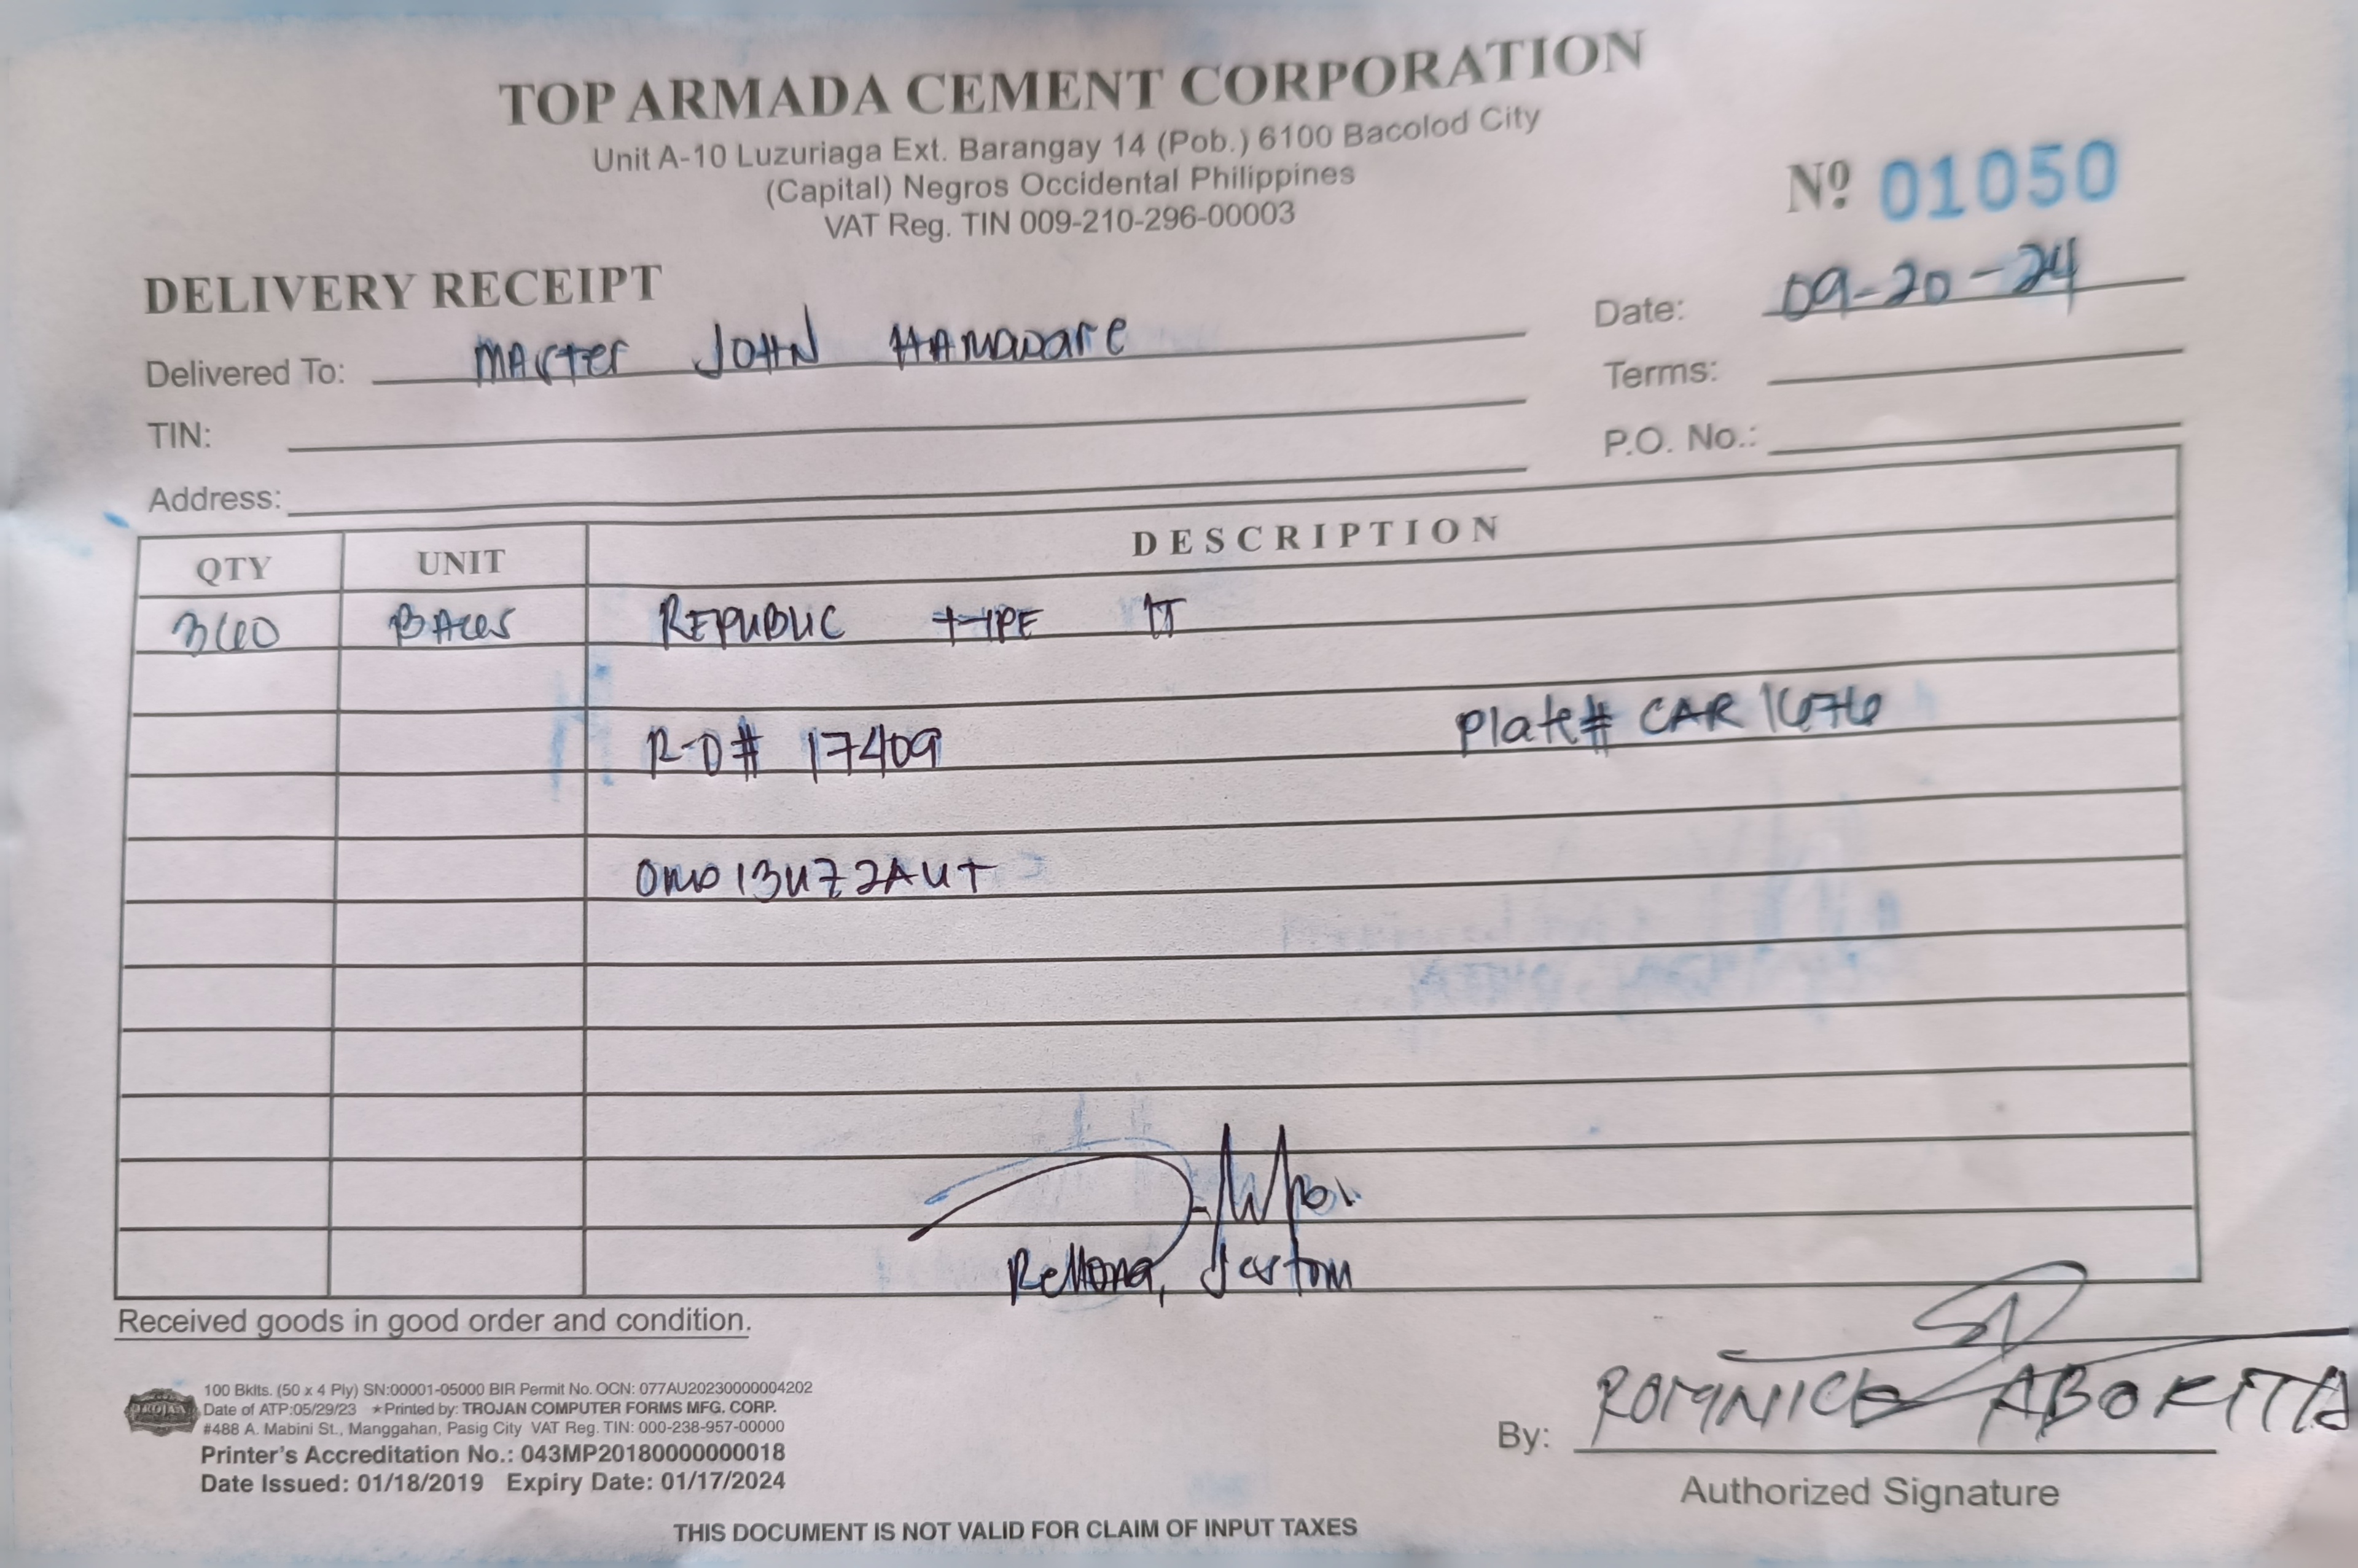 TOP ARMADA CEMENT CORPORATION
Unit A-10 Luzuriaga Ext. Barangay 14 (Pob.) 6100 Bacolod City
(Capital) Negros Occidental Philippines
VAT Reg. TIN 009-210-296-00003
Nº 01050
DELIVERY RECEIPT
Date: 09-20-24
Delivered To: MASTER JOHN HARDWARE
Terms:
TIN:
P.O. No.:
Address:
QTY UNIT DESCRIPTION
360 BAGS REPUBLIC TYPE IT
R-O# 17409 Plate# CAR 1676
Rellona,
Received goods in good order and condition.
TROJAN
100 Bklts. (50 x 4 Ply) SN:00001-05000 BIR Permit No. OCN: 077AU20230000004202
Date of ATP:05/29/23 ★Printed by: TROJAN COMPUTER FORMS MFG. CORP.
#488 A. Mabini St., Manggahan, Pasig City VAT Reg. TIN: 000-238-957-00000
Printer's Accreditation No.: 043MP20180000000018
Date Issued: 01/18/2019 Expiry Date: 01/17/2024
By: ROMNICK ABORITA
Authorized Signature
THIS DOCUMENT IS NOT VALID FOR CLAIM OF INPUT TAXES